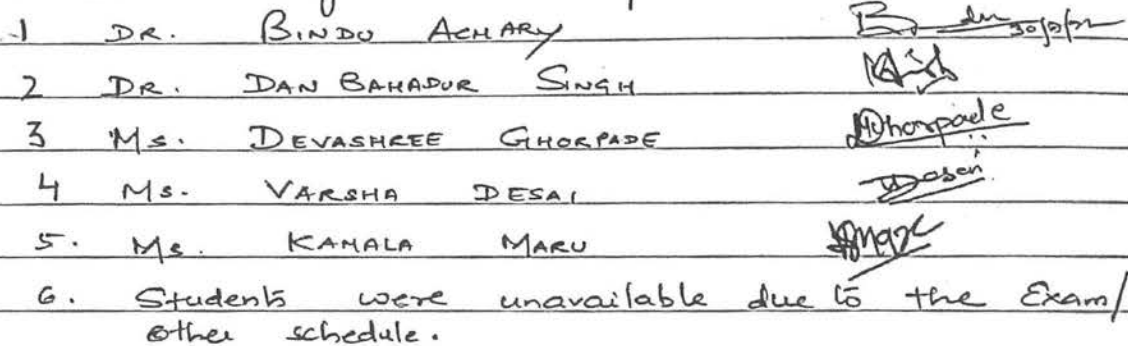 1 DR. BINDU ACHARY
2 DR. DAN BAHADUR SINGH
3 Ms. DEVASHREE GHORPADE Ghorpade
4 Ms. VARSHA DESAI Desai
5. Ms. KAMALA MARU
6. Students were unavailable due to the Exam/
other schedule.